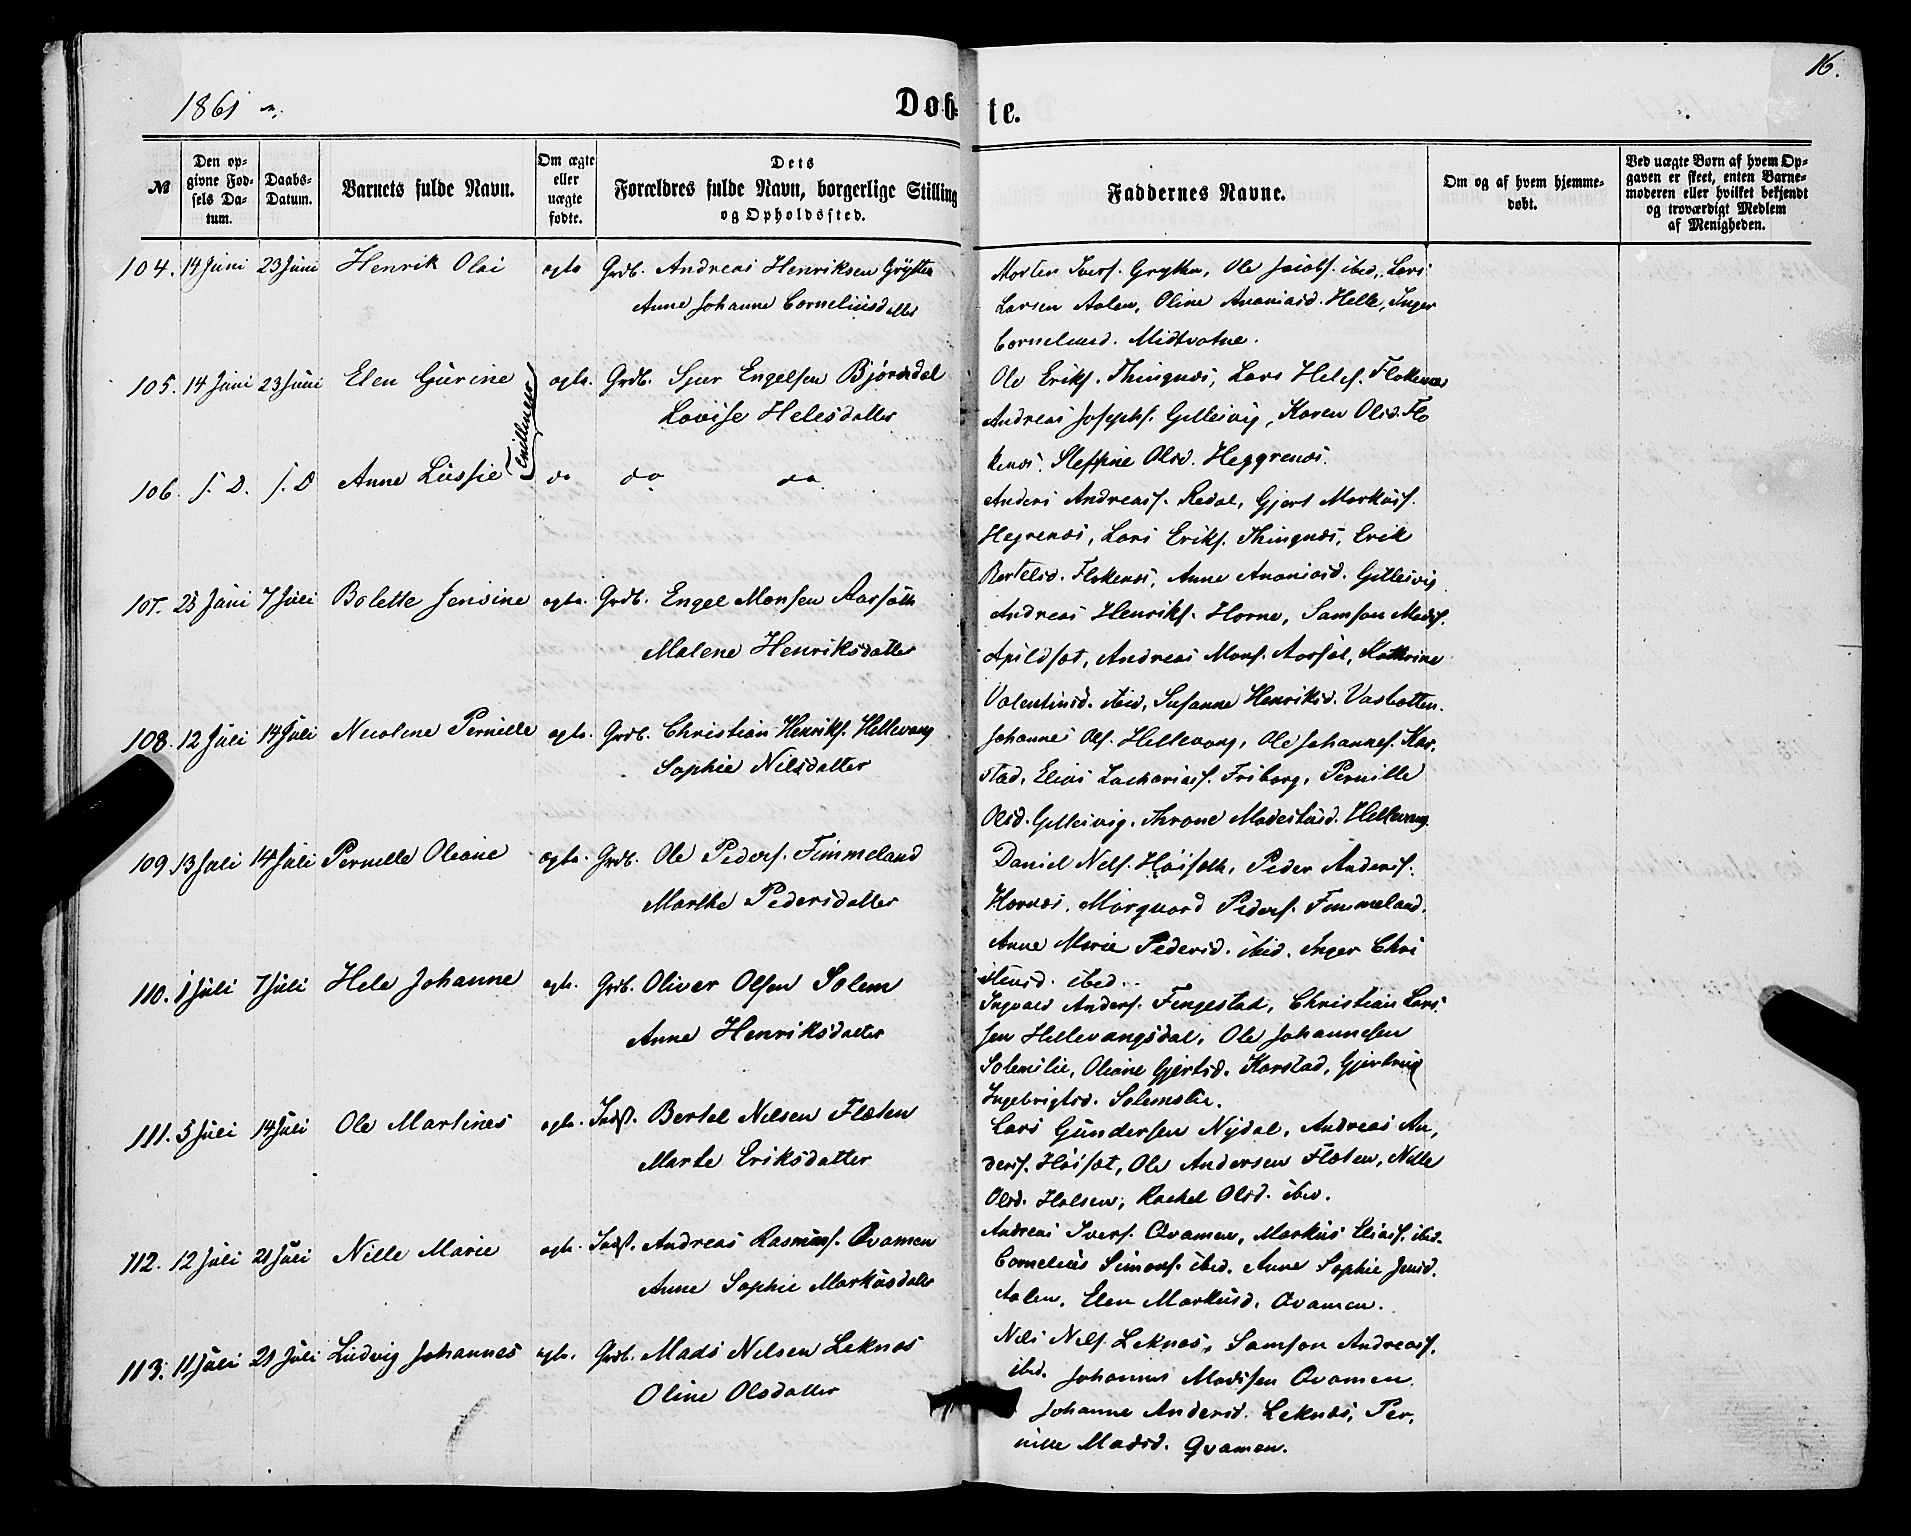 16.
1861
Døbte.
№
Den opgivne Fødsels Datum.
Daabs-Datum.
Barnets fulde Navn.
Om ægte eller uægte fødte.
Dets Forældres fulde Navn, borgerlige Stilling og Opholdssted.
Faddernes Navne.
Om og af hvem hjemmedøbt.
Ved uægte Børn af hvem Opgaven er skeet, enten Barnemoderen eller hvilket bekjendt og troværdigt Medlem af Menigheden.
104. 14 Juni 23 Juni Henrik Olai ægte Grdb. Andreas Henriksen Grytten
Anne Johanne Corneliusdatter
Morten Ivers. Grytten, Ole Jacobs. ibid., Lars
Larsen Aalen, Oline Ananiasd. Helle, Inger
Corneliusd. Midtvatne.
105. 14 Juni 23 Juni Elen Gurine ægte. Grdb. Sjur Engelsen Bjørndal
Lovise Helesdatter
Tvillinger
Ole Eriks. Thingnæs, Lars Heles. Flokenæs
Andreas Josephs. Gilleivig, Karen Olsd. Flo
kenæs. Steffine Olsd. Heggrenæs.
106. s. D. s. D Anne Lussie do do do.
Anders Andreass. Redal, Gjert Markuss.
Hegrenæs, Lars Eriks. Thingnæs, Erik
Bertelsd. Flokenæs, Anne Ananiasd. Gilleivig
107. 28 Juni 7 Juli Bolette Jensine ægte. Grdb. Engel Monsen Aarsæth
Malene Henriksdatter
Andreas Henriks. Horne, Samson Mads.
Apildsæt, Andreas Mons. Aarsæt, Kathrine
Valentinsd. ibid, Susanne Henriksd. Vasbotten.
108. 12 Juli 14 Juli Nicoline Pernille ægte. Grdb. Christian Henriks. Hellevang
Sophie Nilsdatter
Johannes Ols. Hellevang, Ole Johannes. Kar,
stad, Elias Zacharias. Friborg, Pernille
Olsd. Gilleivig. Throne Modestusd. Hellevang
109. 13 Juli 14 Juli Pernille Oliane ægte. Grdb. Ole Peders. Fimmeland
Marthe Pedersdatter
Daniel Nels. Høisæth, Peder Anders.
Hornæs, Margvard Peders. Fimmeland.
Anne Marie Pedersd. ibid. Inger Chri
stensd. ibid.
110. 1 Juli 7 Juli Hele Johanne ægt. Grdb. Oliver Olsen Solem
Anne Henriksdatter
Ingvald Anders. Fingestad, Christian Lars
sen Hellevangsdal, Ole Johannesen
Solemslie, Oliane Gjertsd. Karstad, Gjertrud
Ingebrigtsd. Solemslie.
111. 5 Juli 14 Juli Ole Martines ægte. Indst. Bertel Nilsen Flæten
Marte Eriksdatter
Lars Gundersen Nydal, Andreas An,
ders. Høisæt, Ole Andersen Flæten, Nille
Olsd. Halsen, Rachel Olsd. ibid.
112. 12 Juli 21 Juli Nille Marie ægte. Indst. Andreas Rasmuss. Qvamen
Anne Sophie Markusdatter
Andreas Ivers. Qvamen, Markus Elias. ibid.
Cornelius Simons. ibid. Anne Sophie Jensd.
Aalen, Elen Markusd. Qvamen.
113. 11 Juli 21 Juli Ludvig Johannes ægte. Grdb. Mads Nilsen Leknæs
Oline Olsdatter
Nils Nels. Leknæs, Samson Andreass.
ibid. Johannes Madssen Qvamen.
Johanne Andersd. Leknæs, Per,
nille Madsd. Qvamen.